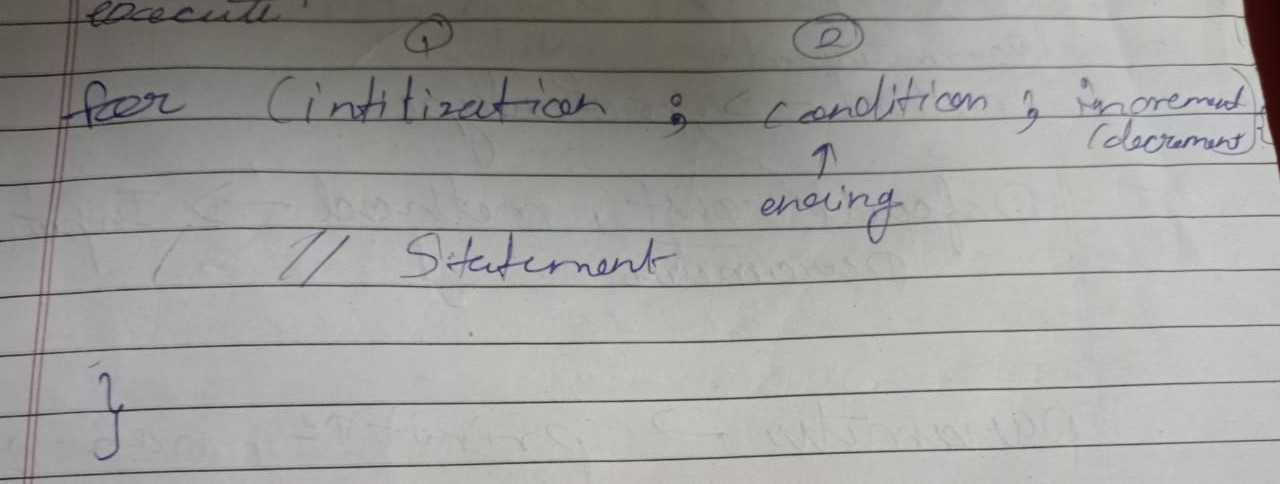 execute
① ②
for (intilization ; condition ; increment) {
(decrement)
↑
ending
// Statement
}